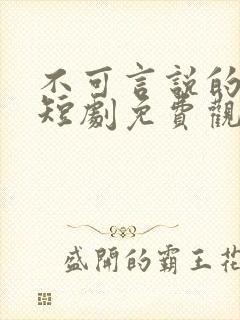 不可言說的
短劇免費觀
盛開的霸王花